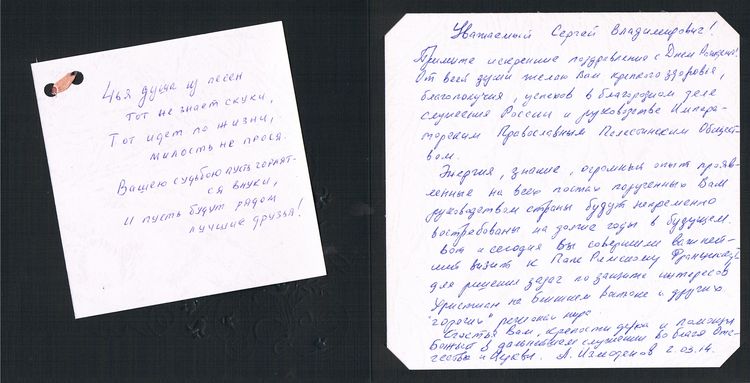 Чья душа из песен
Тот не знает скуки,
Тот идет по жизни,
милость не прося.
Вашею судьбою пусть гордят-
ся внуки,
И пусть будут рядом
лучшие друзья!
Уважаемый Сергей Владимирович!
Примите искренние поздравления с Днем Рождения!
От всей души желаю Вам крепкого здоровья,
благополучия, успехов в благородном деле
служения России и руководстве Импера-
торским Православным Палестинским Общест-
вом.
Энергия, знание, огромный опыт прояв-
ленные на всех постах порученных Вам
руководством страны будут непременно
востребованы на долгие годы в будущем.
Вот и сегодня Вы совершили важней-
ший визит к Папе Римскому Франциску I
для решения задач по защите интересов
Христиан на Ближнем Востоке и других
"горячих" регионах мира.
Счастья Вам, крепости духа и помощи
Божьей в дальнейшем служении во благо Оте-
чества и Церкви. А. 2.03.14.